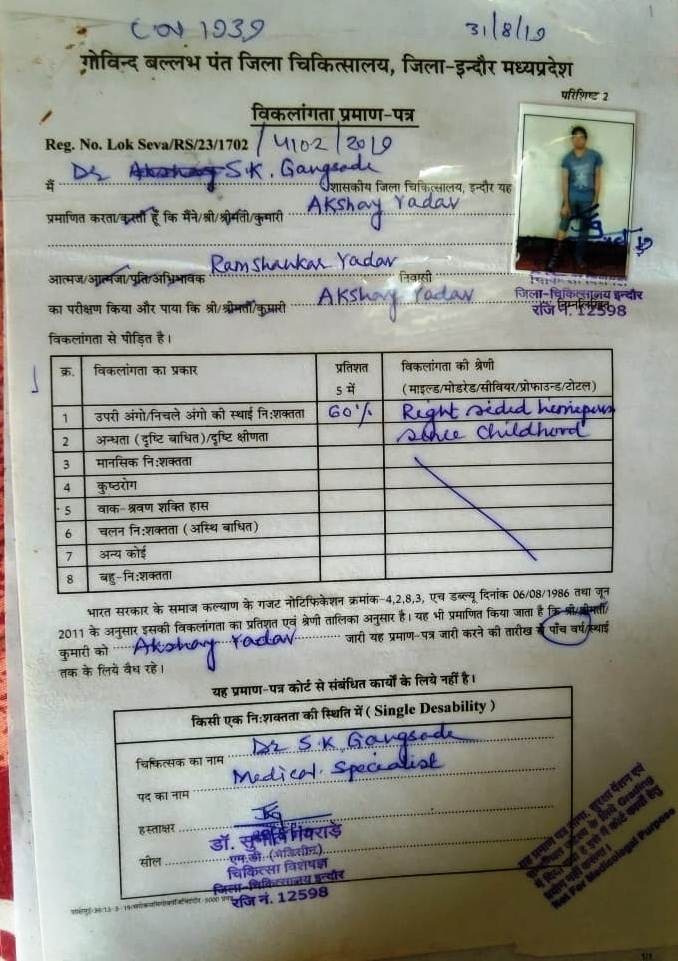 COV 1939
31/8/19
गोविन्द बल्लभ पंत जिला चिकित्सालय, जिला-इन्दौर मध्यप्रदेश
परिशिष्ट 2
विकलांगता प्रमाण-पत्र
Reg. No. Lok Seva/RS/23/1702 / 4102 / 2019
मैं Dr S.K. Gangrade शासकीय जिला चिकित्सालय, इन्दौर यह
प्रमाणित करता/करती हूँ कि मैंने/श्री/श्रीमती/कुमारी Akshay Yadav
आत्मज/आत्मजा/पति/अभिभावक Ramshankar Yadav निवासी
का परीक्षण किया और पाया कि श्री/श्रीमती/कुमारी Akshay Yadav
जिला-चिकित्सालय इन्दौर
रजि नं. 12598
विकलांगता से पीड़ित है।
क्र. विकलांगता का प्रकार प्रतिशत 5 में विकलांगता की श्रेणी
(माइल्ड/मोडरेड/सीवियर/प्रोफाउन्ड/टोटल)
1 उपरी अंगो/निचले अंगो की स्थाई नि:शक्तता 60% Right sided
2 अन्धता (दृष्टि बाधित)/दृष्टि क्षीणता since childhood
3 मानसिक नि:शक्तता
4 कुष्ठरोग
5 वाक-श्रवण शक्ति हास
6 चलन नि:शक्तता (अस्थि बाधित)
7 अन्य कोई
8 बहु-नि:शक्तता
भारत सरकार के समाज कल्याण के गजट नोटिफिकेशन क्रमांक-4,2,8,3, एच डब्ल्यू दिनांक 06/08/1986 तथा जून
2011 के अनुसार इसकी विकलांगता का प्रतिशत एवं श्रेणी तालिका अनुसार है। यह भी प्रमाणित किया जाता है कि श्री/श्रीमती/
कुमारी को Akshay Yadav जारी यह प्रमाण-पत्र जारी करने की तारीख से पाँच वर्ष/स्थाई
तक के लिये वैध रहे।
यह प्रमाण-पत्र कोर्ट से संबंधित कार्यो के लिये नहीं है।
किसी एक नि:शक्तता की स्थिति में ( Single Desability )
चिकित्सक का नाम Dr S.K. Gangrade
पद का नाम Medical Specialist
हस्ताक्षर
सील
एम.डी. (मेडिसीन)
चिकित्सा विशेषज्ञ
जिला-चिकित्सालय इन्दौर
रजि नं. 12598
Not For Medicolegal Purpose